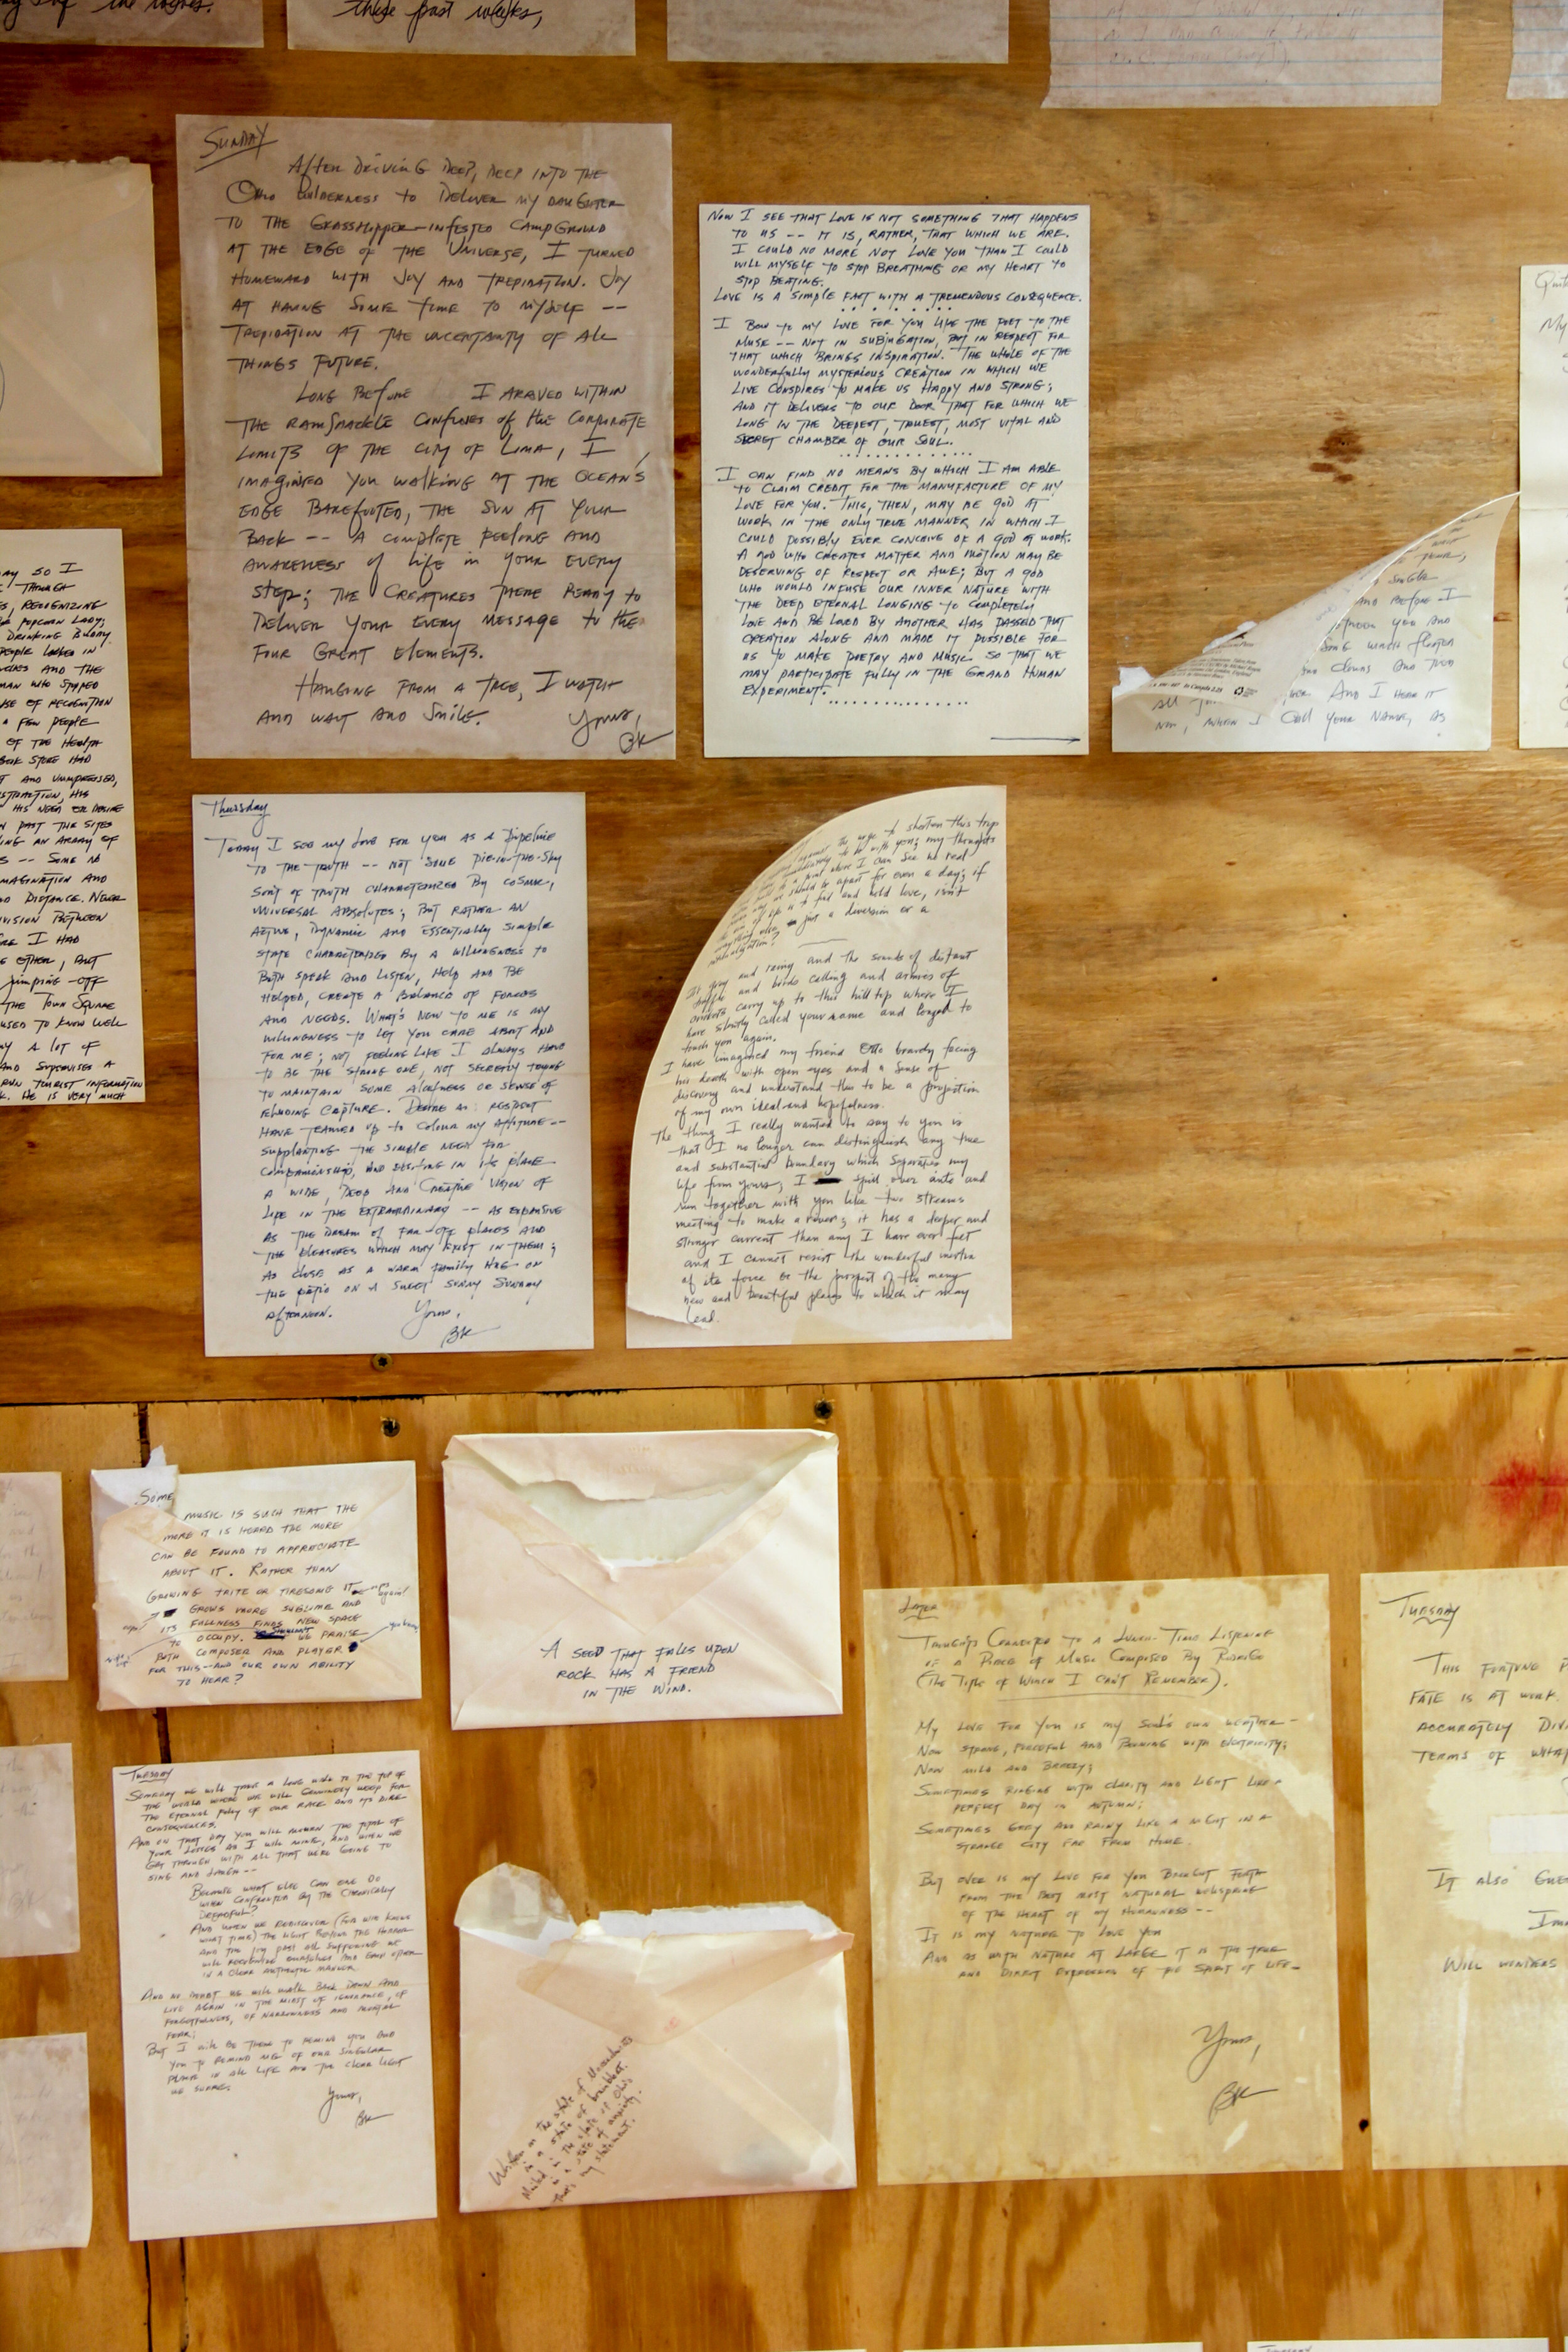 these past weeks,
SUNDAY
After DRIVING DEEP, DEEP INTO THE
OHIO WILDERNESS to DELIVER MY DAUGHTER
TO THE GRASSHOPPER-INFESTED CAMPGROUND
AT THE EDGE OF THE UNIVERSE, I TURNED
HOMEWARD WITH JOY AND TREPIDATION. JOY
AT HAVING SOME TIME TO MYSELF --
TREPIDATION AT THE UNCERTAINTY OF ALL
THINGS FUTURE.
LONG BEFORE I ARRIVED WITHIN
THE RAMSHACKLE CONFINES of the CORPORATE
LIMITS OF THE CITY OF LIMA, I
IMAGINED YOU WALKING AT THE OCEAN'S
EDGE BAREFOOTED, THE SUN AT YOUR
BACK -- A COMPLETE FEELING AND
AWARENESS of life in YOUR EVERY
STEP; THE CREATURES THERE READY TO
DELIVER YOUR EVERY MESSAGE to the
FOUR GREAT ELEMENTS.
HANGING FROM A TREE, I WATCH
AND WAIT AND SMILE.
Yours,
BK
NOW I SEE THAT LOVE IS NOT SOMETHING THAT HAPPENS
TO US -- IT IS, RATHER, THAT WHICH WE ARE.
I COULD NO MORE NOT LOVE YOU THAN I COULD
WILL MYSELF TO STOP BREATHING OR MY HEART TO
STOP BEATING.
LOVE IS A SIMPLE FACT WITH A TREMENDOUS CONSEQUENCE.
I BOW TO MY LOVE FOR YOU LIKE THE POET TO THE
MUSE -- NOT IN SUBJUGATION, BUT IN RESPECT FOR
THAT WHICH BRINGS INSPIRATION. THE WHOLE OF THE
WONDERFULLY MYSTERIOUS CREATION IN WHICH WE
LIVE CONSPIRES TO MAKE US HAPPY AND STRONG;
AND IT DELIVERS TO OUR DOOR THAT FOR WHICH WE
LONG IN THE DEEPEST, TRUEST, MOST VITAL AND
SECRET CHAMBER OF OUR SOUL.
I CAN FIND NO MEANS BY WHICH I AM ABLE
TO CLAIM CREDIT FOR THE MANUFACTURE OF MY
LOVE FOR YOU. THIS, THEN, MAY BE GOD AT
WORK IN THE ONLY TRUE MANNER IN WHICH I
COULD POSSIBLY EVER CONCEIVE OF A GOD AT WORK.
A GOD WHO CREATES MATTER AND MOTION MAY BE
DESERVING OF RESPECT OR AWE; BUT A GOD
WHO WOULD INFUSE OUR INNER NATURE WITH
THE DEEP ETERNAL LONGING TO COMPLETELY
LOVE AND BE LOVED BY ANOTHER HAS PASSED THAT
CREATION ALONG AND MADE IT POSSIBLE FOR
US TO MAKE POETRY AND MUSIC SO THAT WE
MAY PARTICIPATE FULLY IN THE GRAND HUMAN
EXPERIMENT.
SINGLE
AND BEFORE I
YOU AND
AND I HEAR IT
NOW, WHEN I CALL YOUR NAME, AS
SO I
THOUGHT
RECOGNIZING
POPCORN LADY;
DRINKING BUDDY
PEOPLE LOCKED IN
AND THE
MAN WHO STOPPED
OF RECOGNITION
A FEW PEOPLE
OF THE HEALTH
STORE HAD
AND UNIMPRESSED,
HIS
HIS NEED OR DESIRE
PAST THE SITES
AN ARRAY OF
-- SOME NO
IMAGINATION AND
DISTANCE. NEVER
DIVISION BETWEEN
I HAD
OTHER, BUT
jumping-off
THE TOWN SQUARE
USED TO KNOW WELL
A LOT OF
AND SUPERVISES A
TOURIST INFORMATION
HE IS VERY MUCH
Thursday
TODAY I SEE MY LOVE FOR YOU AS A PIPELINE
TO THE TRUTH -- NOT SOME PIE-IN-THE-SKY
SORT OF TRUTH CHARACTERIZED BY COSMIC,
UNIVERSAL ABSOLUTES; BUT RATHER AN
ACTIVE, DYNAMIC AND ESSENTIALLY SIMPLE
STATE CHARACTERIZED BY A WILLINGNESS TO
BOTH SPEAK AND LISTEN, HELP AND BE
HELPED, CREATE A BALANCE OF FORCES
AND NEEDS. WHAT'S NEW TO ME IS MY
WILLINGNESS TO LET YOU CARE ABOUT AND
FOR ME; NOT FEELING LIKE I ALWAYS HAVE
TO BE THE STRONG ONE, NOT SECRETLY TRYING
TO MAINTAIN SOME ALOOFNESS OR SENSE OF
ELUDING CAPTURE. DESIRE AND RESPECT
HAVE TEAMED UP TO COLOUR MY ATTITUDE --
SUPPLANTING THE SIMPLE NEED FOR
COMPANIONSHIP, AND IN ITS PLACE
A WIDE, DEEP AND CREATIVE VISION OF
LIFE IN THE EXTRAORDINARY -- AS EXPANSIVE
AS THE DREAM OF FAR-OFF PLACES AND
THE PLEASURES WHICH MAY EXIST IN THEM;
AS CLOSE AS A WARM FAMILY HUG ON
THE PATIO ON A SWEET SUNNY SUNDAY
AFTERNOON.
Yours,
BK
the urge to shorten this trip
to be with you; my thoughts
I can see no real
should be apart for even a day; if
is to find and hold love, isn't
anything else just a diversion or a
It's grey and raining and the sounds of distant
traffic and birds calling and armies of
crickets carry up to this hilltop where I
have silently called your name and longed to
touch you again.
I have imagined my friend brandy facing
his death with open eyes and a sense of
discovery and understand this to be a projection
of my own ideal and hopefulness.
The thing I really wanted to say to you is
that I no longer can distinguish any true
and substantial boundary which separates my
life from yours; I spill over into and
run together with you like two streams
meeting to make a river; it has a deeper and
stronger current than any I have ever felt
and I cannot resist the wonderful inertia
of its force or the prospect of the many
new and beautiful places to which it may
lead.
SOME
MUSIC IS SUCH THAT THE
MORE IT IS HEARD THE MORE
CAN BE FOUND TO APPRECIATE
ABOUT IT. RATHER THAN
GROWING TRITE OR TIRESOME IT
GROWS MORE SUBLIME AND
ITS FULLNESS FINDS NEW SPACE
TO OCCUPY. WE PRAISE
BOTH COMPOSER AND PLAYER
FOR THIS -- AND OUR OWN ABILITY
TO HEAR?
A SEED THAT FALLS UPON
ROCK HAS A FRIEND
IN THE WIND.
TUESDAY
SOMEDAY WE WILL TAKE A LONG WALK TO THE TOP OF
THE WORLD WHERE WE WILL GENUINELY WEEP FOR
THE ETERNAL FOLLY OF OUR RACE AND ITS DIRE
CONSEQUENCES.
AND ON THAT DAY YOU WILL MOURN THE TOTAL OF
YOUR LOSSES AS I WILL MINE, AND WHEN WE
GET THROUGH WITH ALL THAT WE'RE GOING TO
SING AND LAUGH --
BECAUSE WHAT ELSE CAN ONE DO
WHEN CONFRONTED BY THE CHRONICALLY
DREADFUL?
AND WHEN WE REDISCOVER (FOR WHO KNOWS
WHAT TIME) THE LIGHT BEHIND THE HORROR
AND THE JOY PAST ALL SUFFERING WE
WILL RECOGNIZE OURSELVES AND EACH OTHER
IN A CLEAR AUTHENTIC MANNER
AND NO DOUBT WE WILL WALK BACK DOWN AND
LIVE AGAIN IN THE MIDST OF IGNORANCE, OF
FORGETFULNESS, OF NARROWNESS AND MORTAL
FEAR;
BUT I WILL BE THERE TO REMIND YOU AND
YOU TO REMIND ME OF OUR SINGULAR
PLACE IN ALL LIFE AND THE CLEAR LIGHT
WE SHARE.
Yours,
BK
Written in the state of
in a state of
Mailed in the state of Ohio
in a state of anxiety.
That's my statement.
LATER
THOUGHTS CONNECTED TO A LUNCH-TIME LISTENING
OF A PIECE OF MUSIC COMPOSED BY RODRIGO
(THE TITLE OF WHICH I CAN'T REMEMBER).
MY LOVE FOR YOU IS MY SOUL'S OWN WEATHER --
NOW STRONG, FORCEFUL AND BURNING WITH ELECTRICITY;
NOW MILD AND BREEZY;
SOMETIMES RINGING WITH CLARITY AND LIGHT LIKE A
PERFECT DAY IN AUTUMN;
SOMETIMES GREY AND RAINY LIKE A NIGHT IN A
STRANGE CITY FAR FROM HOME.
BUT EVER IS MY LOVE FOR YOU BROUGHT FORTH
FROM THE MOST NATURAL WELLSPRING
OF THE HEART OF MY HUMANNESS --
IT IS MY NATURE TO LOVE YOU
AND AS WITH NATURE AT LARGE IT IS THE TRUE
AND DIRECT EXPRESSION OF THE SPIRIT OF LIFE --
Yours,
BK
TUESDAY
THIS FORTUNE
FATE IS AT WORK.
ACCURATELY
TERMS OF
IT ALSO
WILL WONDERS